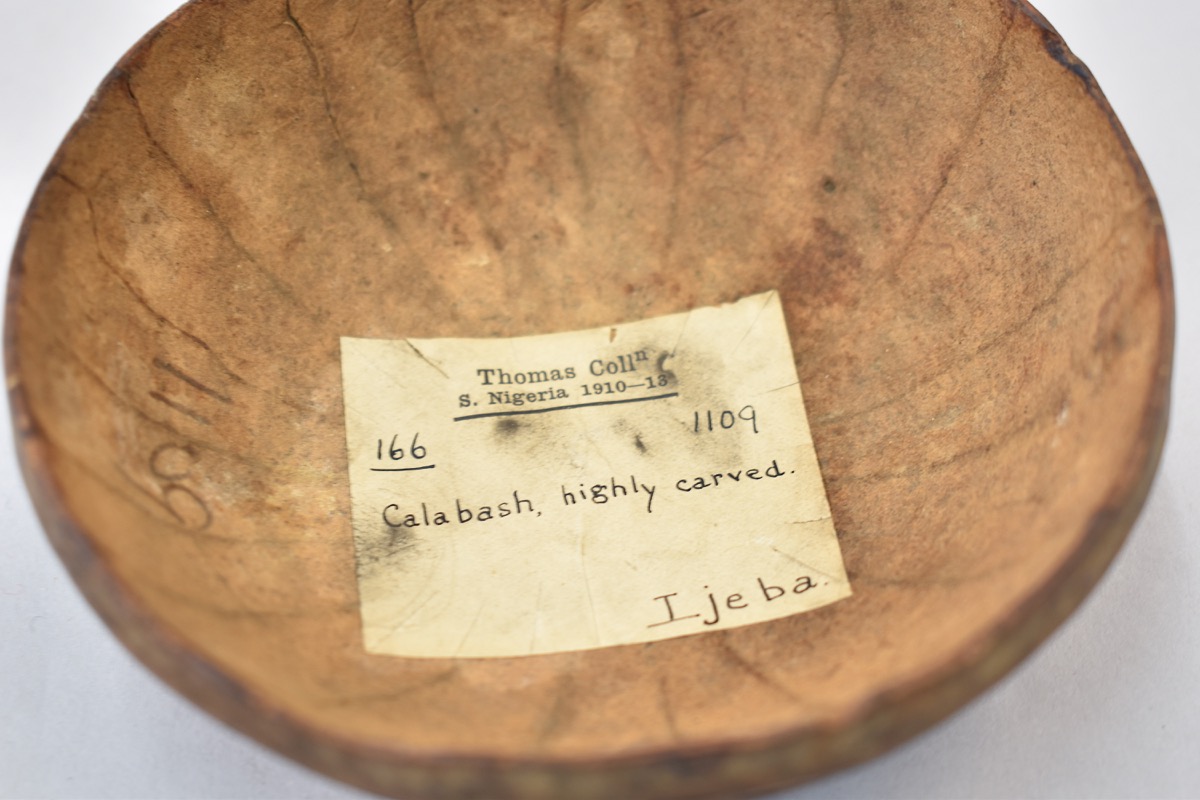 Thomas Collⁿ
S. Nigeria 1910—13
166
1109
Calabash, highly carved.
Ijeba.